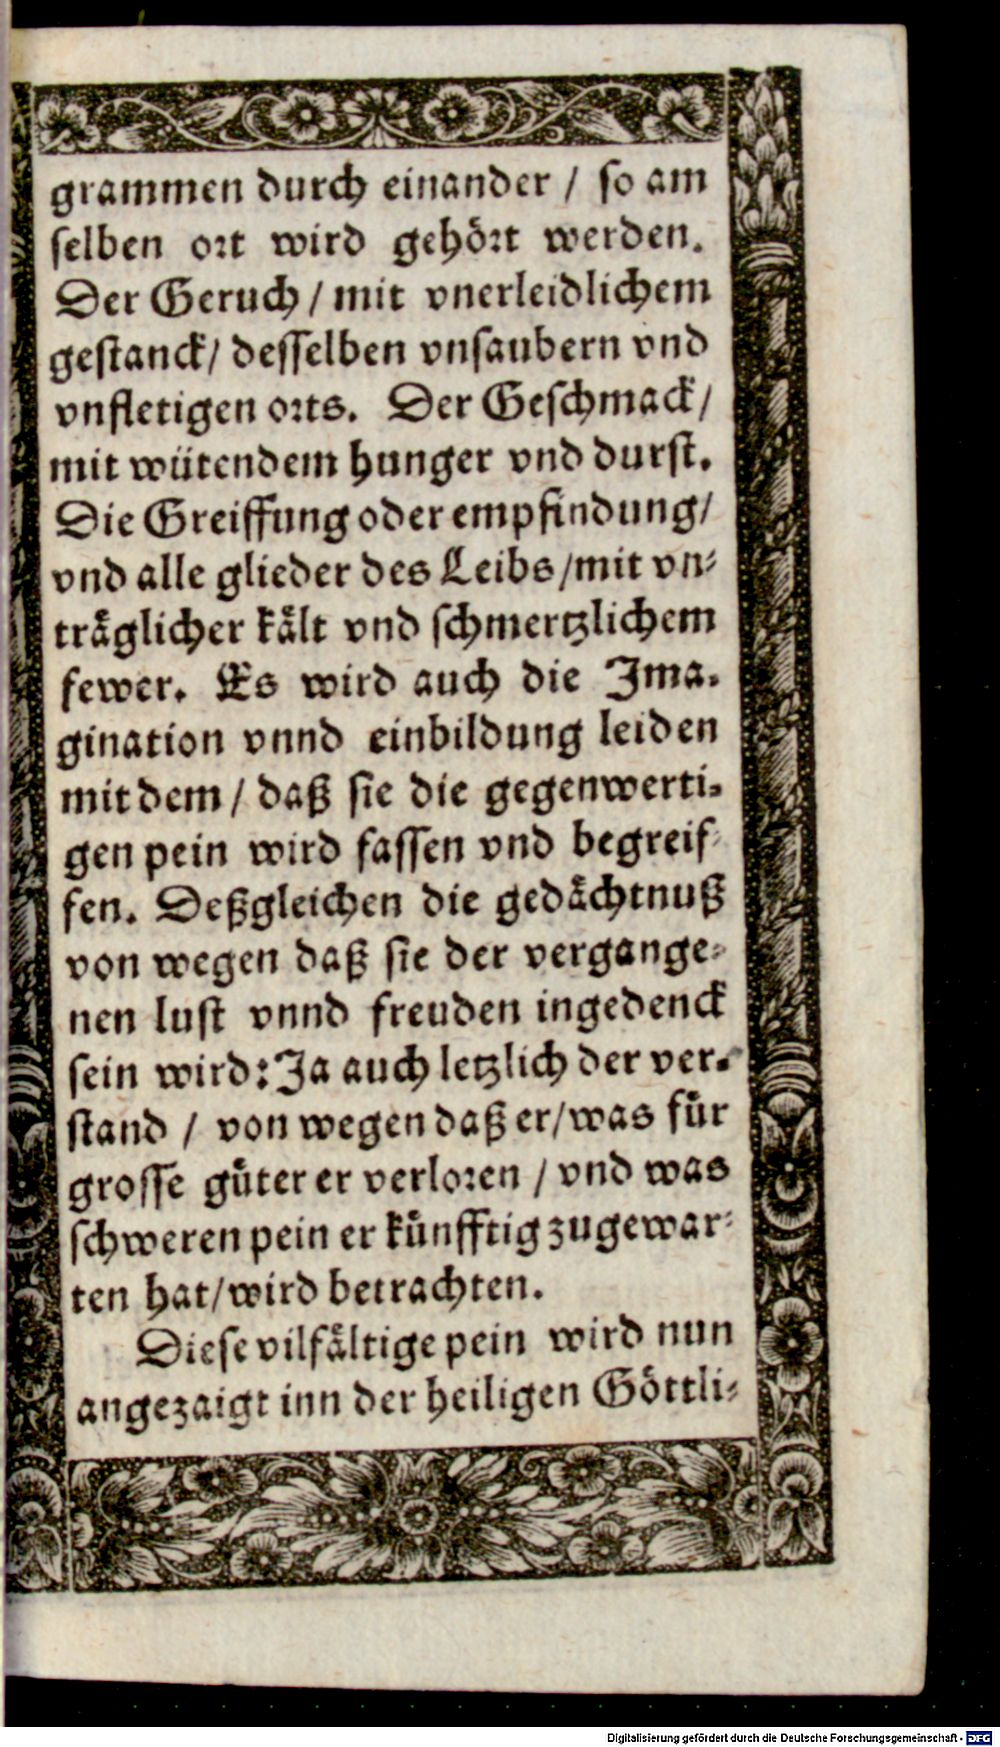 grammen durch einander / so am
selben ort wird gehört werden.
Der Geruch / mit vnerleidlichem
gestanck / desselben vnsaubern vnd
vnfletigen orts. Der Geschmack /
mit wütendem hunger vnd durst.
Die Greiffung oder empfindung /
vnd alle glieder des Leibs / mit vn-
träglicher kält vnd schmertzlichem
fewer. Es wird auch die Ima-
gination vnnd einbildung leiden
mit dem / daß sie die gegenwerti-
gen pein wird fassen vnd begreif-
fen. Deßgleichen die gedächtnuß
von wegen daß sie der vergange-
nen lust vnnd freuden ingedenck
sein wird: Ja auch letzlich der ver-
stand / von wegen daß er / was für
grosse güter er verloren / vnd was
schweren pein er künfftig zugewar-
ten hat / wird betrachten.
Diese vilfältige pein wird nun
angezaigt inn der heiligen Göttli-
Digitalisierung gefördert durch die Deutsche Forschungsgemeinschaft - DFG